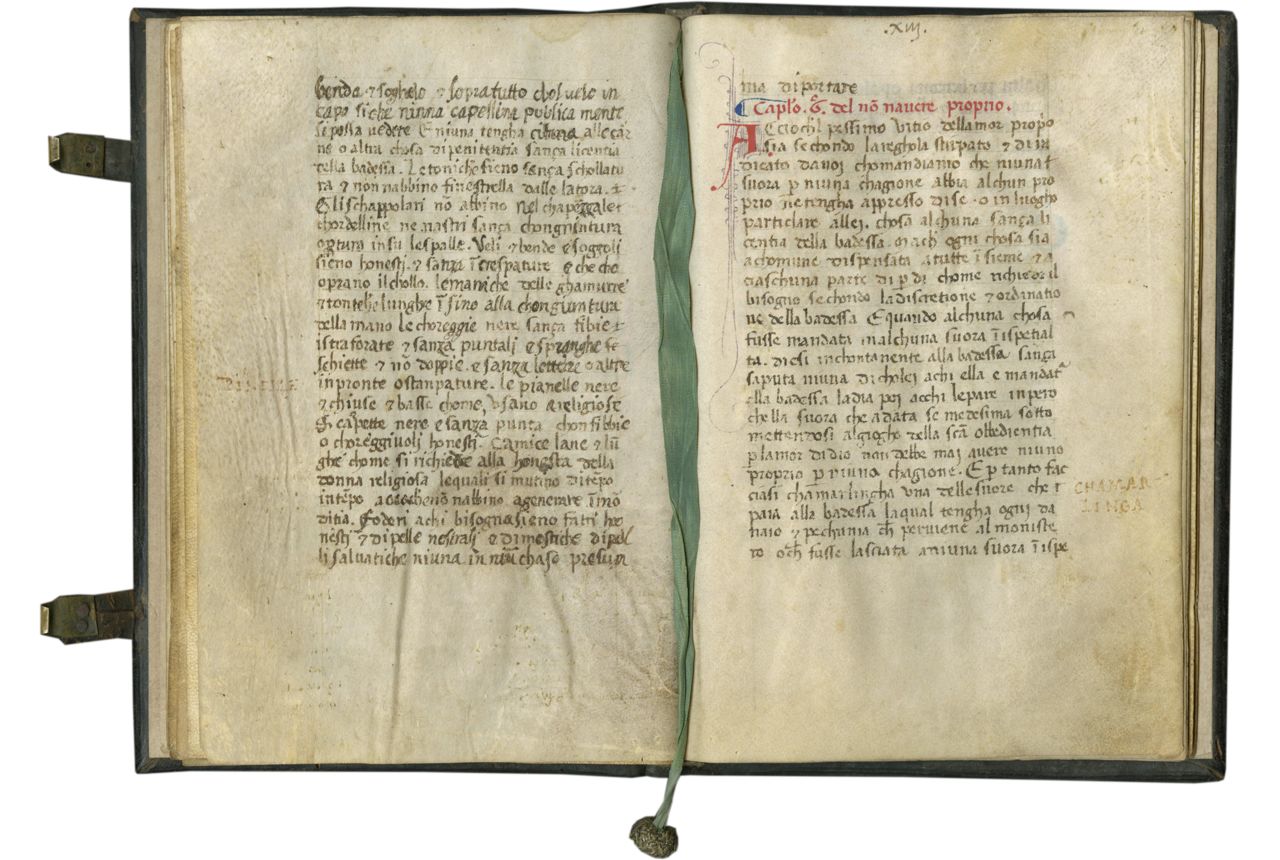 benda ⁊ soghelo ⁊ sopratutto chol velo in
capo si che niuna capellina publica mente
si possa vedere E niuna tengha alle car
ne o altra chosa di penitentia sança licentia
della badessa. Le toniche sieno sença scollatu
ra ⁊ non nabbino finestrella dalle latora. ⁊
Gli schappolari nō abbino nel chapezzale ⁊
chordelline ne nastri sança chongiuntura
o in su le spalle. Veli ⁊ bende ⁊ soggoli
sieno honesti. ⁊ sanza īcrespature ⁊ che cho
oprano il chollo. le maniche delle ghamurre
⁊ lunghe īsino alla chongiuntura
della mano le choreggie nere sança fibie ⁊
istraforate ⁊ sanza puntali ⁊ spranghe se
schiette ⁊ nō doppie. ⁊ sanza lettere o altre
inpronte o stanpature. le pianelle nere
PIANELLE
⁊ chiuse ⁊ basse chome usano religiose
E scarpette nere e sanza punta chon fibbie
o choreggiuoli honesti. Camice lane ⁊ lū
ghe chome si richiede alla honesta della
donna religiosa le quali si mutino di tēpo
intēpo accio che nō nabbino agenerare īmō
ditia. Foderi a chi bisogna sieno fatti ho
nesti ⁊ di pelle nostrali ⁊ dimestiche di pel
li salvatiche niuna in niū chaso presum
.xiij.
ma di portare
Caplo. 6. del nō navere proprio.
Accioch'l pessimo vitio dellamor propo
sia secondo la reghola stirpato ⁊ di ra
dicato da voi chomandiamo che niuna
suora p niuna chagione abbia alchun pro
prio ne tengha appresso di se. o in luogho
particlare allej. chosa alchuna sança li
centia della badessa. mach' ogni chosa sia
a chomune dispensata a tutte īsieme ⁊ a
ciaschuna parte di p di chome richiede il
bisogno secondo la discretione ⁊ ordinatio
ne della badessa E quando alchuna chosa
fusse mandata in alchuna suora īispetial
ta. diesi inchontanente alla badessa sança
saputa niuna di cholei a chi ella e mandata
ella badessa la dia poi acchi le pare inpero
che lla suora che a data se medesima sotto
mettendosi al giogho della scā obbedientia
p lamor di dio non debbe mai avere niuno
proprio p niuna chagione. E p tanto fac
ciasi chamarlingha una delle suore che ⁊
CHAMAR
LINGA
paia alla badessa la qual tengha ogni da
naio ⁊ pechunia ch' perviene al moniste
ro och' fusse lasciata aniuna suora īispe